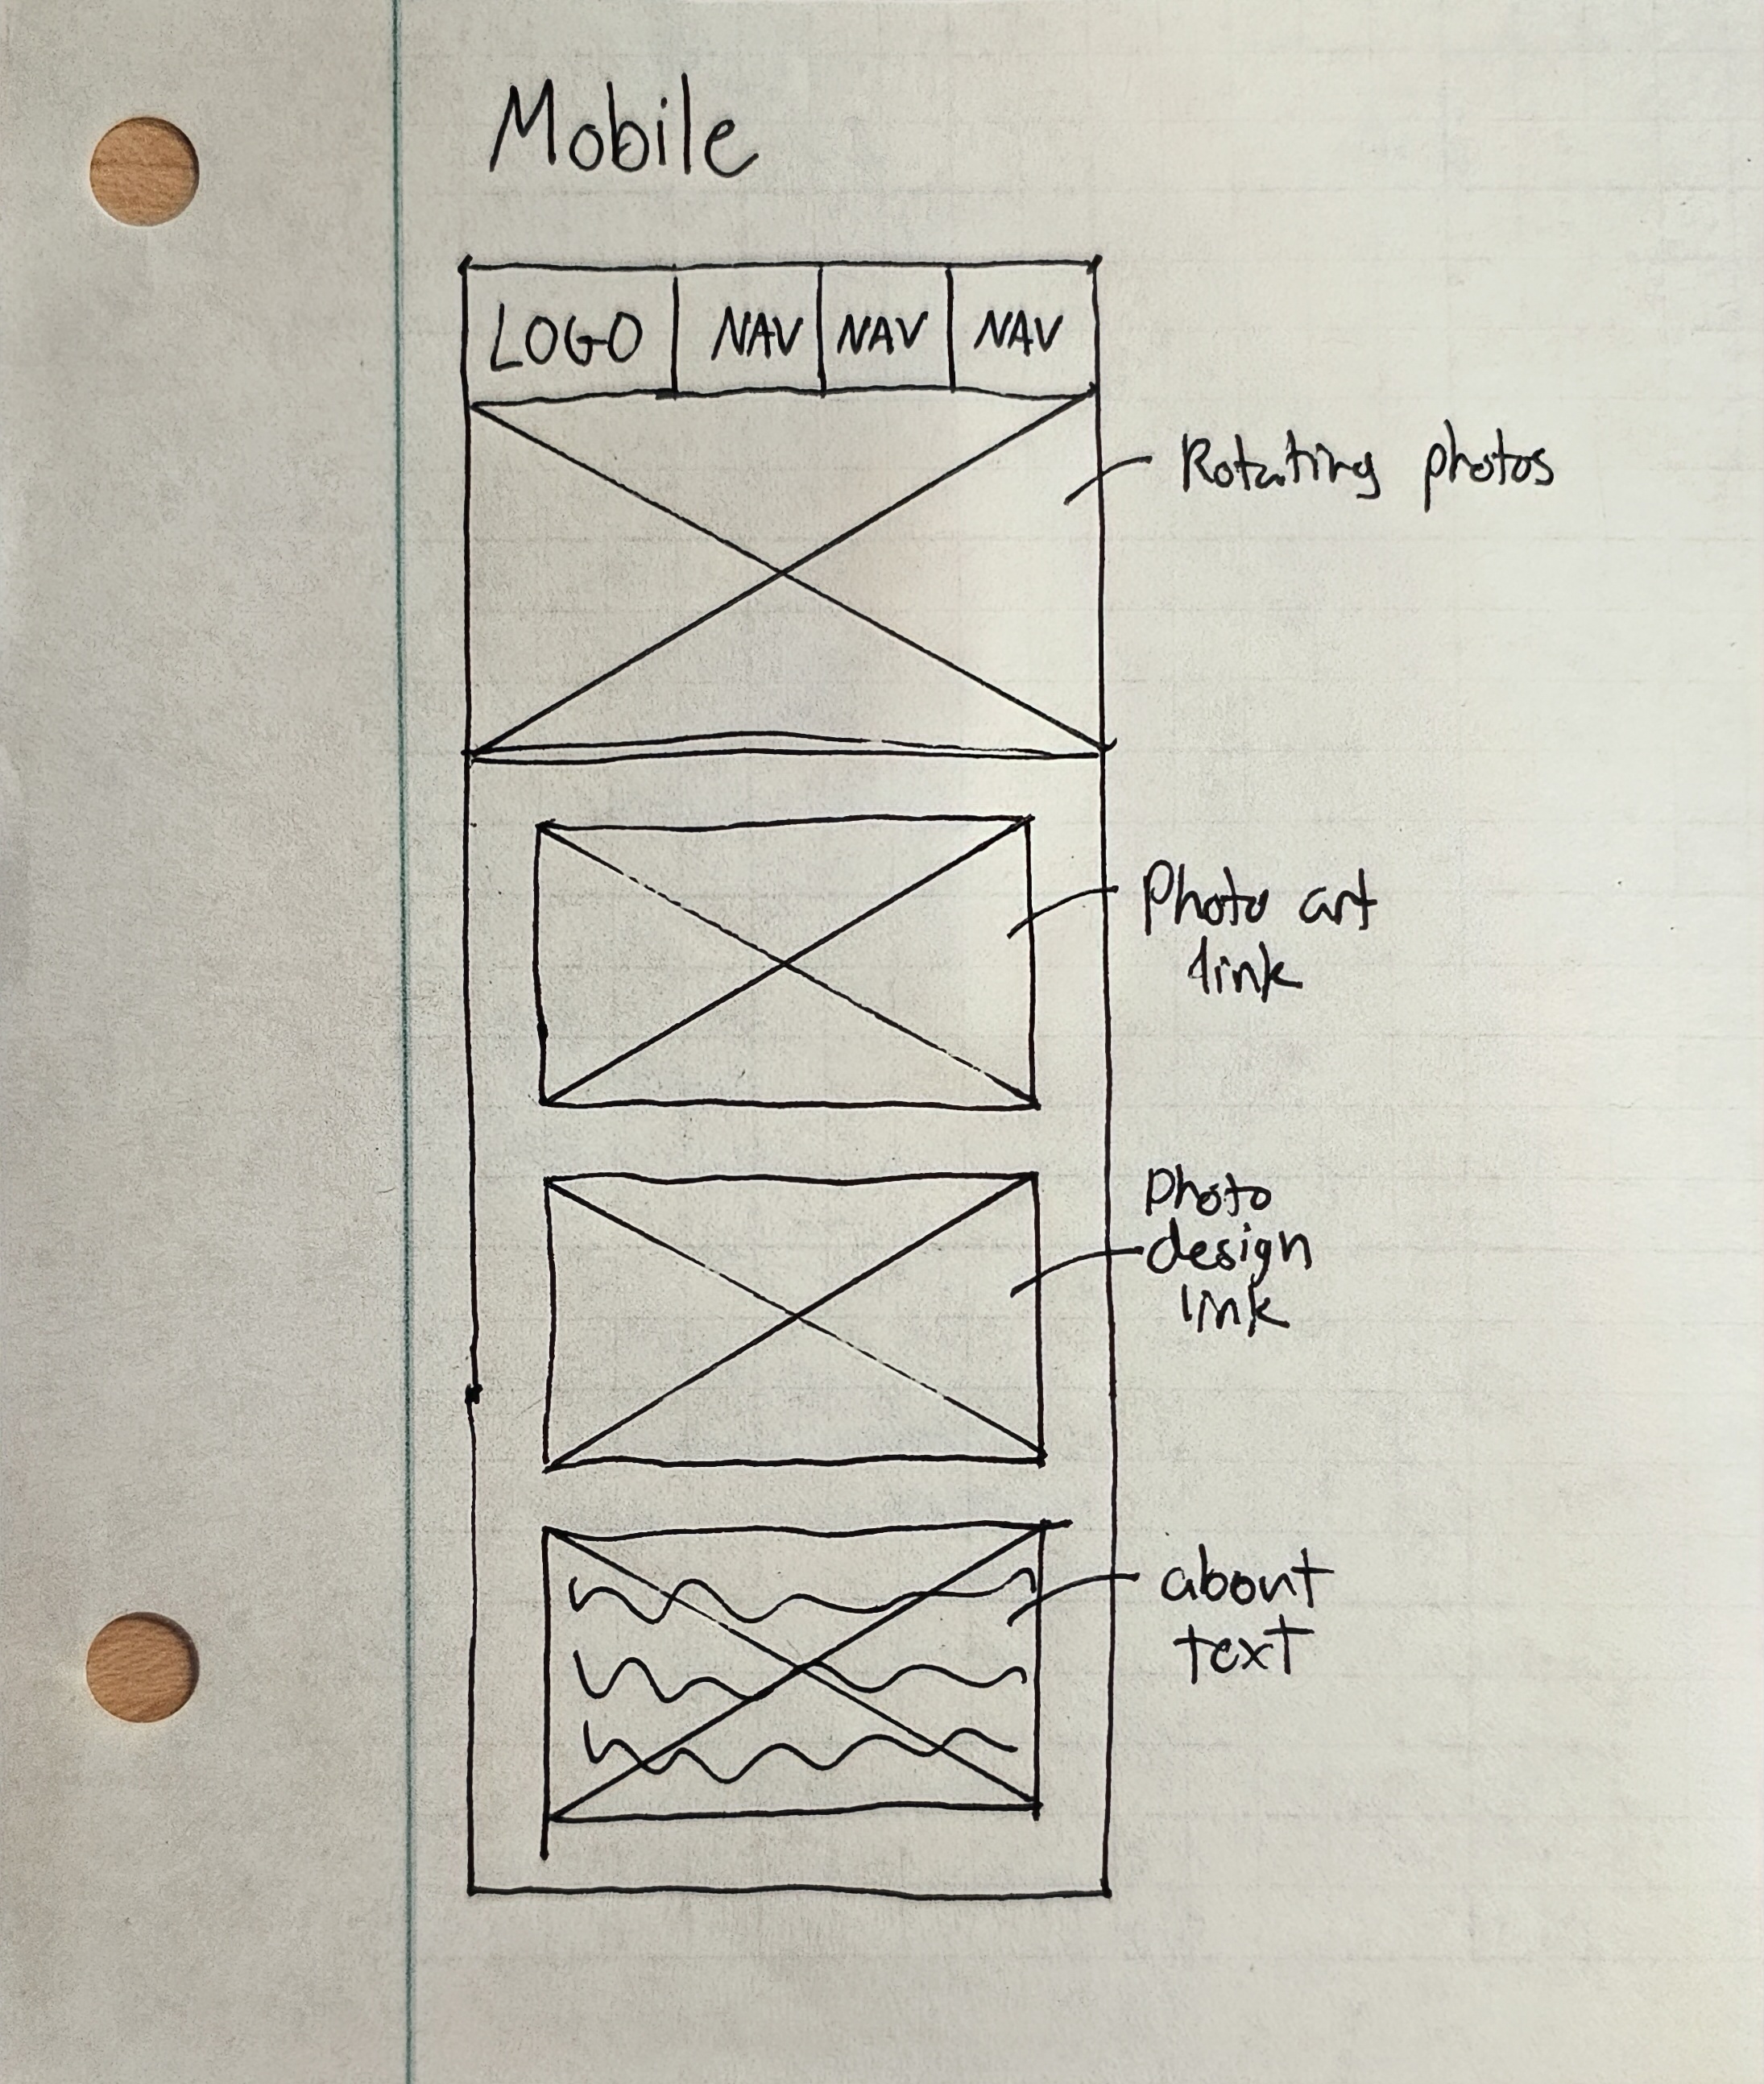 Mobile
LOGO NAV NAV NAV
Rotating photos
Photo art
link
Photo
design
link
about
text